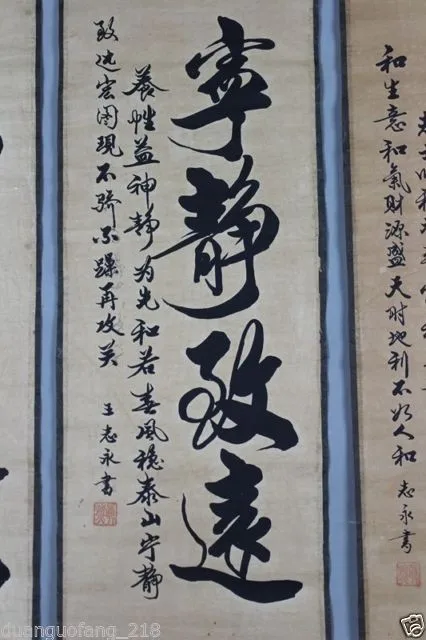 和生意和氣财源盛天时地利不如人和 志永書
寧靜致遠
養性益神静为先和若春風穩泰山宁静
致远宏图現不骄不躁再攻关
王志永書
duanguofang_218